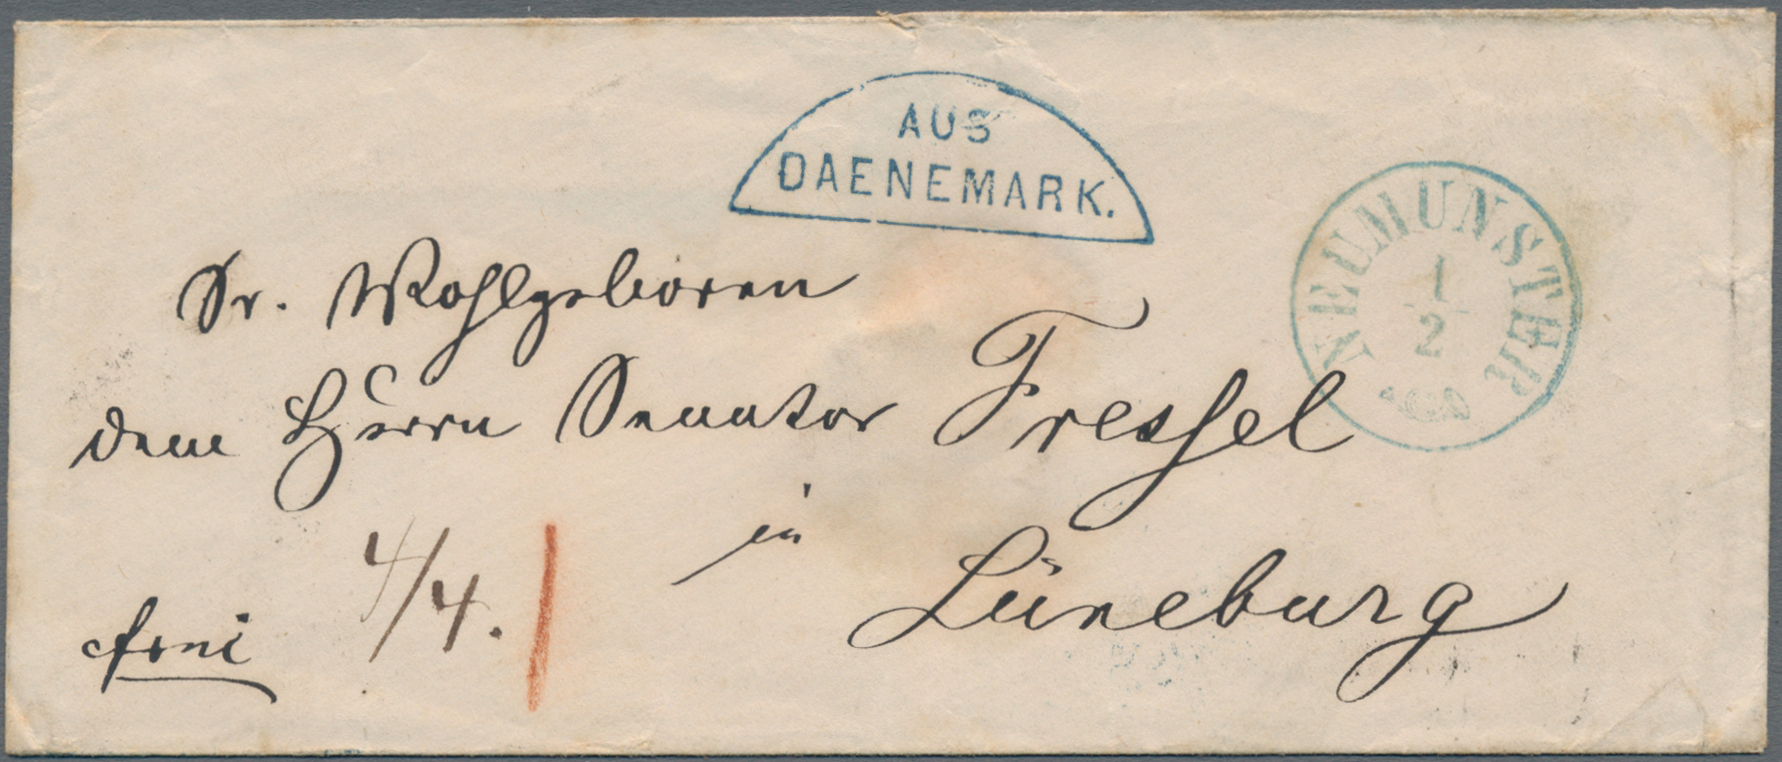 AUS
DAENEMARK.
NEUMUNSTER
1
2
Sr. Wohlgeboren
dem Herrn Senator Fressel
in
Lüneburg
4/4.
frei